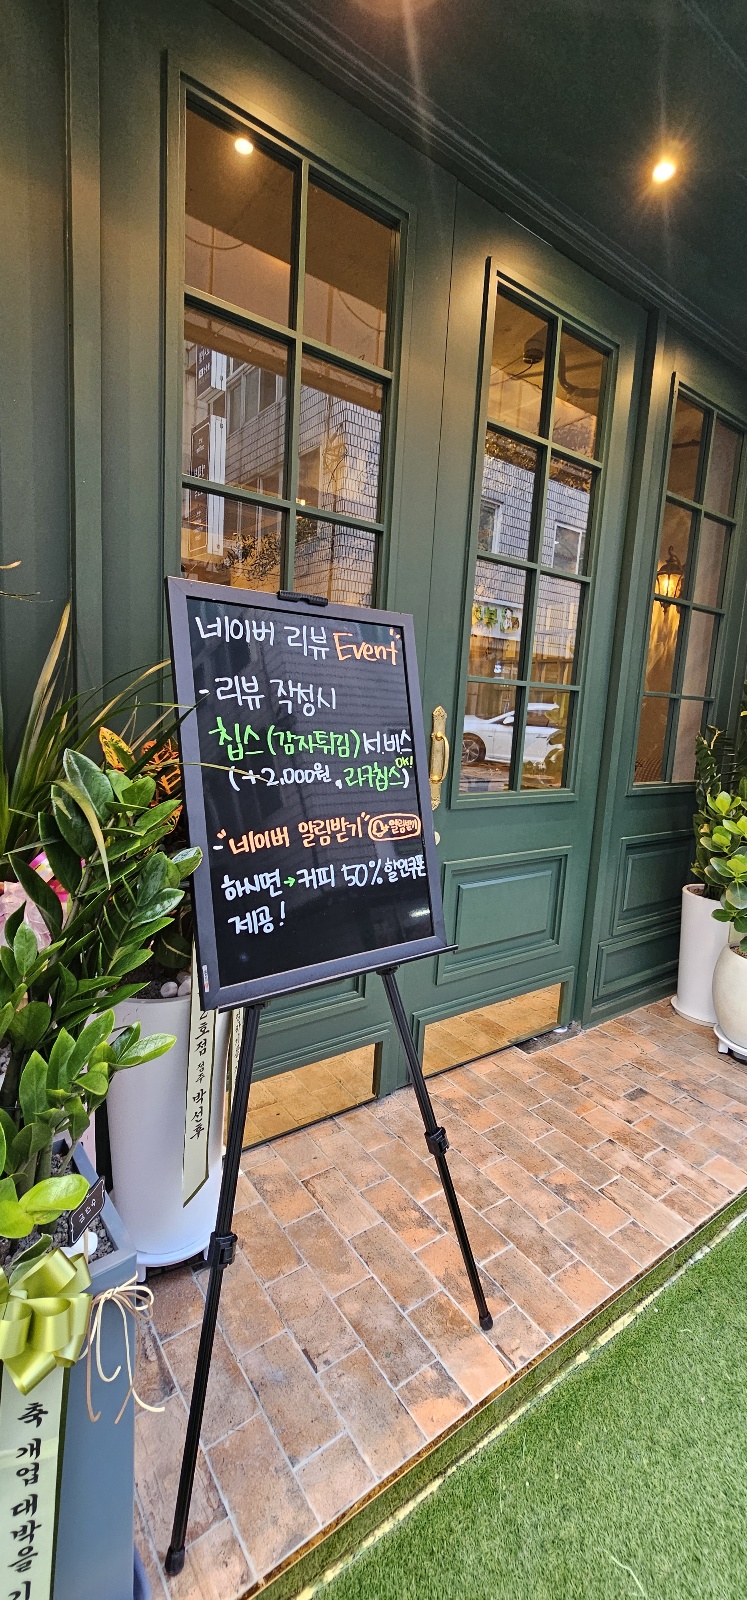 네이버 리뷰 Event
- 리뷰 작성시
칩스 (감자튀김) 서비스
(+2,000원, 라구칩스 OK!)
- "네이버 알림받기" (알림받기)
하시면 → 커피 50% 할인쿠폰
제공!
2호점 점주 박선후
금전수
축 개업 대박을 기